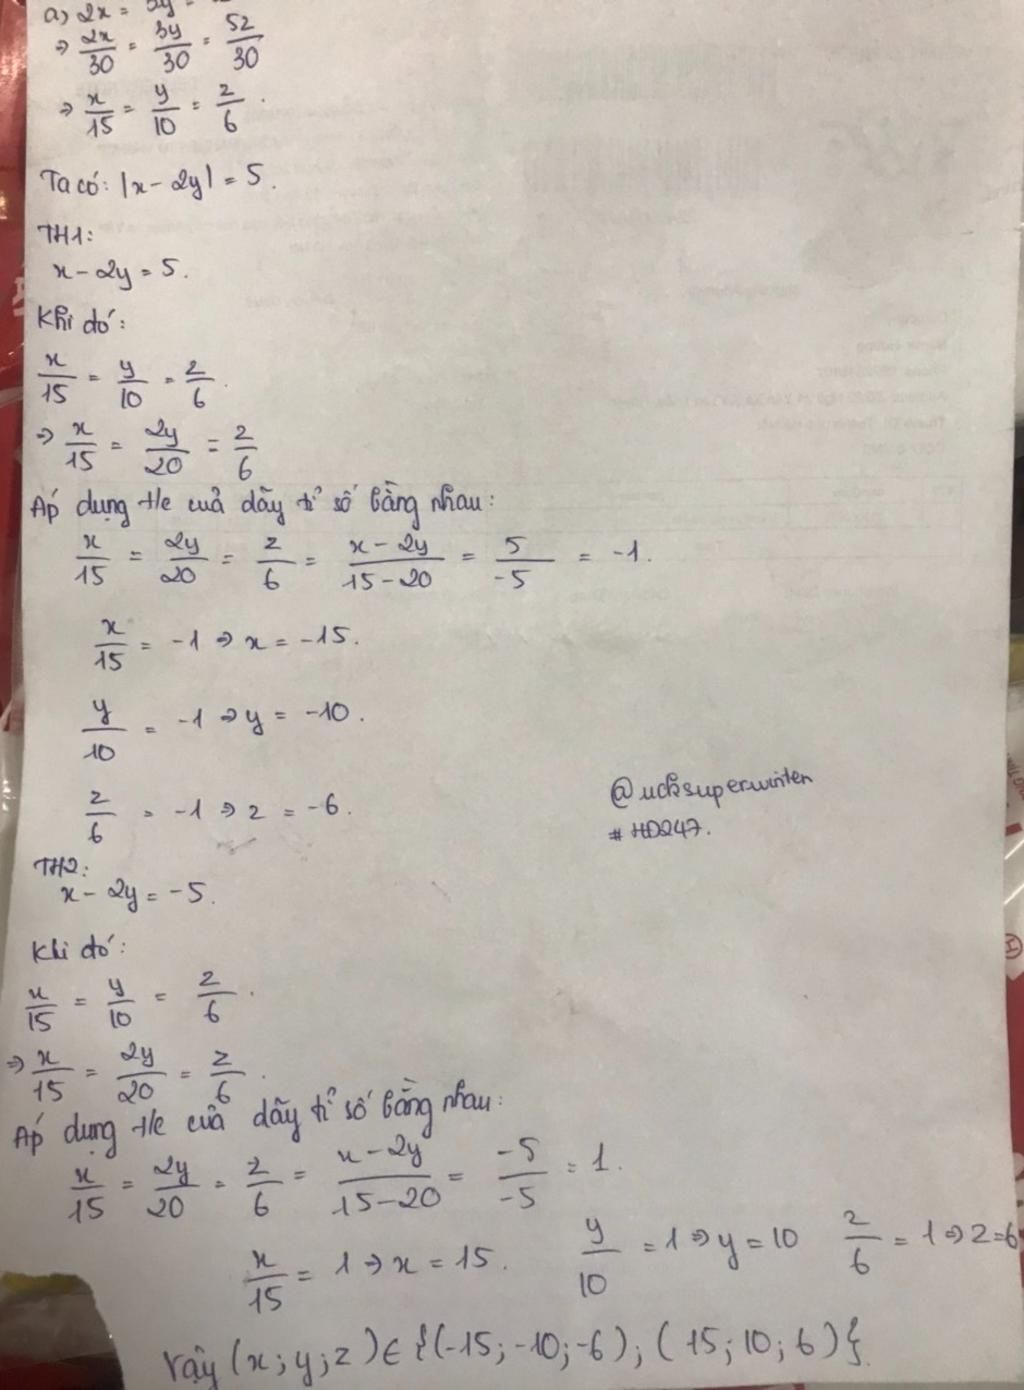 a) 2x = 3y =
⇒ 2x/30 = 3y/30 = 5z/30
⇒ x/15 = y/10 = z/6.
Ta có: |x - 2y| = 5.
TH1:
x - 2y = 5.
Khi đó:
x/15 = y/10 = z/6.
⇒ x/15 = 2y/20 = z/6
Áp dụng t/c của dãy tỉ số bằng nhau:
x/15 = 2y/20 = z/6 = (x - 2y)/(15 - 20) = 5/-5 = -1.
x/15 = -1 ⇒ x = -15.
y/10 = -1 ⇒ y = -10.
z/6 = -1 ⇒ z = -6.
@ucksuperwinten
#HD247.
TH2:
x - 2y = -5.
Khi đó:
x/15 = y/10 = z/6.
⇒ x/15 = 2y/20 = z/6.
Áp dụng t/c của dãy tỉ số bằng nhau:
x/15 = 2y/20 = z/6 = (x - 2y)/(15 - 20) = -5/-5 = 1.
x/15 = 1 ⇒ x = 15. y/10 = 1 ⇒ y = 10 z/6 = 1 ⇒ z = 6
Vậy (x; y; z) ∈ {(-15; -10; -6); (15; 10; 6)}.